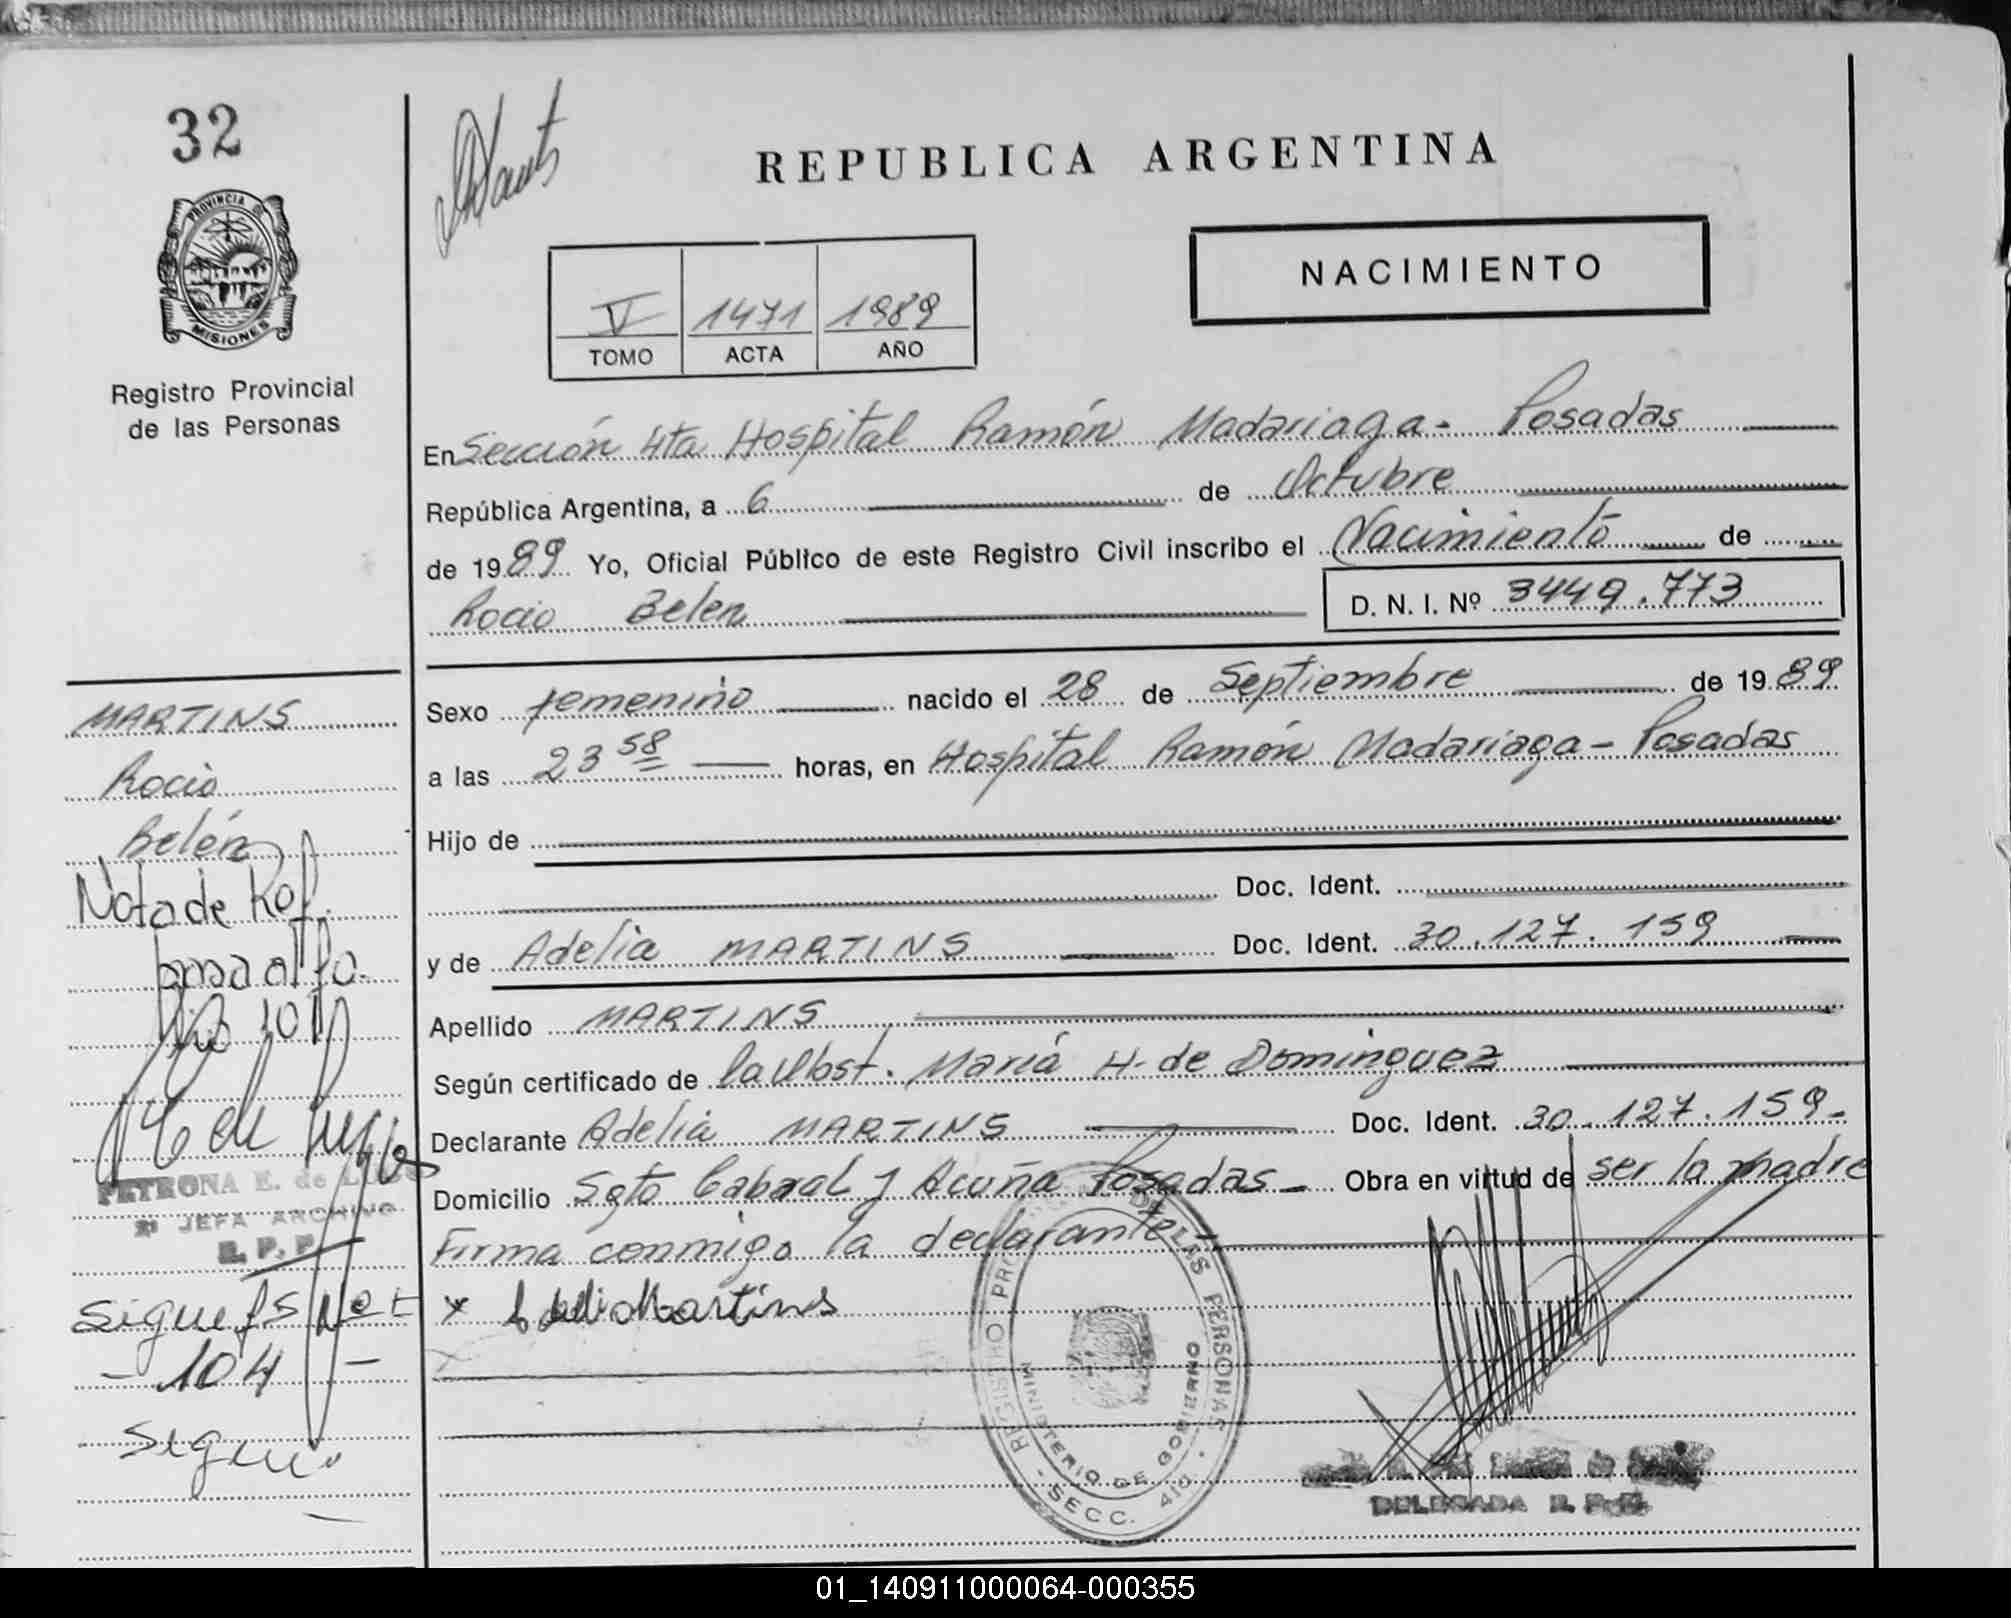 32
PROVINCIA DE
MISIONES
Registro Provincial
de las Personas
REPUBLICA ARGENTINA
NACIMIENTO
V 1471 1989
TOMO ACTA AÑO
En Sección 4ta Hospital Ramón Madariaga - Posadas
República Argentina, a 6 de Octubre
de 1989 Yo, Oficial Público de este Registro Civil inscribo el Nacimiento de
Rocio Belen D. N. I. Nº 3449.773
Sexo femenino nacido el 28 de Septiembre de 1989
a las 23 58 horas, en Hospital Ramón Madariaga - Posadas
Hijo de
Doc. Ident.
y de Adelia MARTINS Doc. Ident. 30.127.159
Apellido MARTINS
Según certificado de la Obst. María H. de Dominguez
Declarante Adelia MARTINS Doc. Ident. 30.127.159-
Domicilio Sgto Cabral y Acuña Posadas - Obra en virtud de ser la madre
Firma conmigo la declarante -
x Martins
REGISTRO PROVINCIAL DE LAS PERSONAS
MINISTERIO DE GOBIERNO
SECC. 4ta
DELEGADA R. P. P.
MARTINS
Rocio
Belén
Nota de Ref.
pasa al fo.
PETRONA E. de
JEFA ARCHIVO
R. P. P.
Sigue fs Not
- 104 -
Sigue
01_140911000064-000355